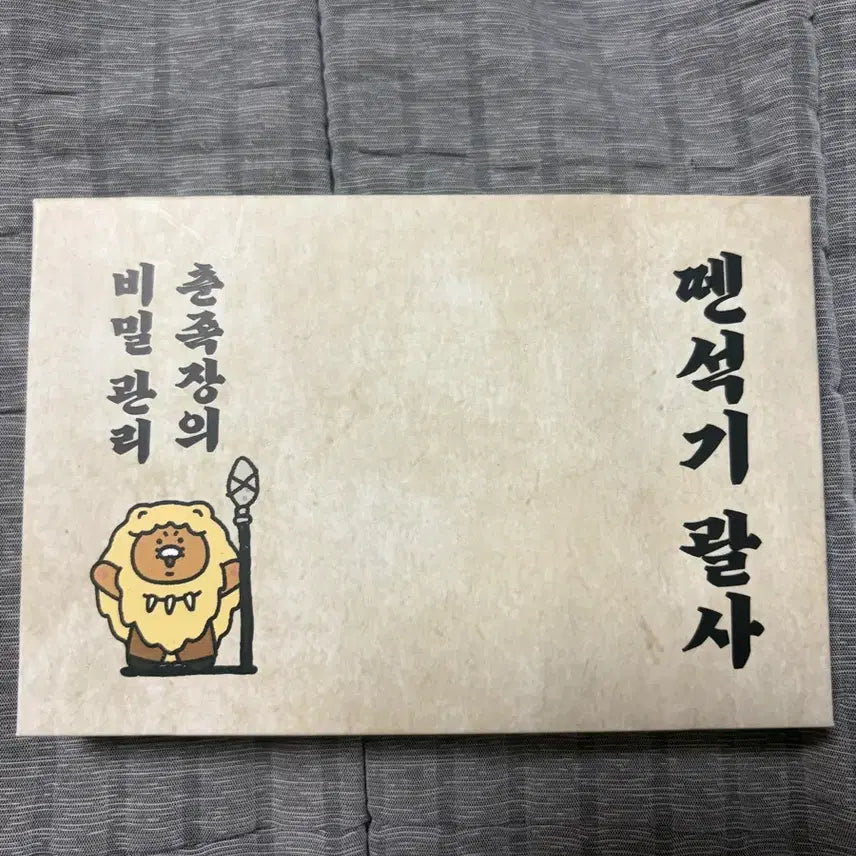 뗀석기 괄사
춘족장의
비밀 관리